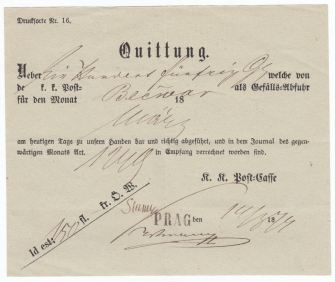 Drucksorte Nr. 16.
Quittung.
Ueber Ein Hundert fünfzig welche von
de k. k. Post- Bečwar als Gefälls-Abfuhr
für den Monat 18
März
am heutigen Tage zu unseren Handen bar und richtig abgeführt, und in dem Journal des gegen-
wärtigen Monats Art. in Empfang verrechnet worden sind.
K. K. Post-Casse
Id est: 150 fl. kr. Ö. W.
PRAG den 18 74